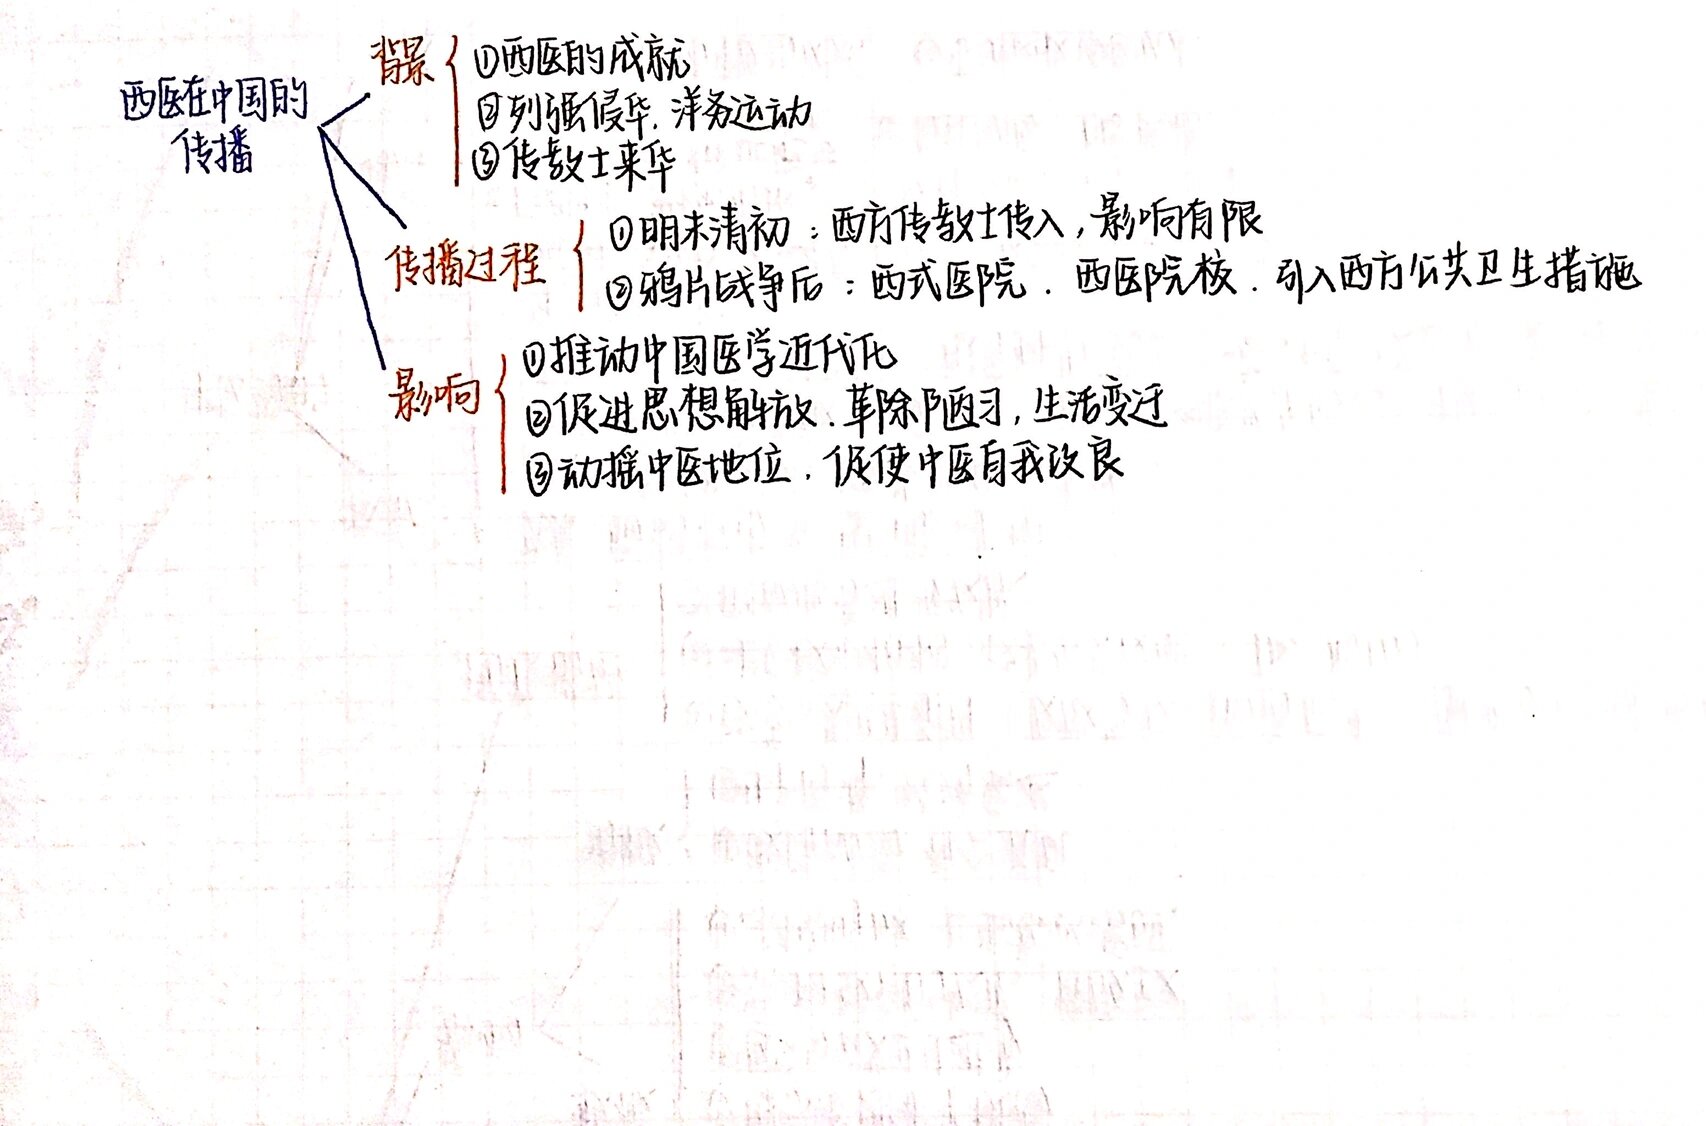 西医在中国的
传播
背景
①西医的成就
②列强侵华、洋务运动
③传教士来华
传播过程
①明末清初：西方传教士传入，影响有限
②鸦片战争后：西式医院、西医院校、引入西方公共卫生措施
影响
①推动中国医学近代化
②促进思想解放、革除陋习，生活变迁
③动摇中医地位，促使中医自我改良